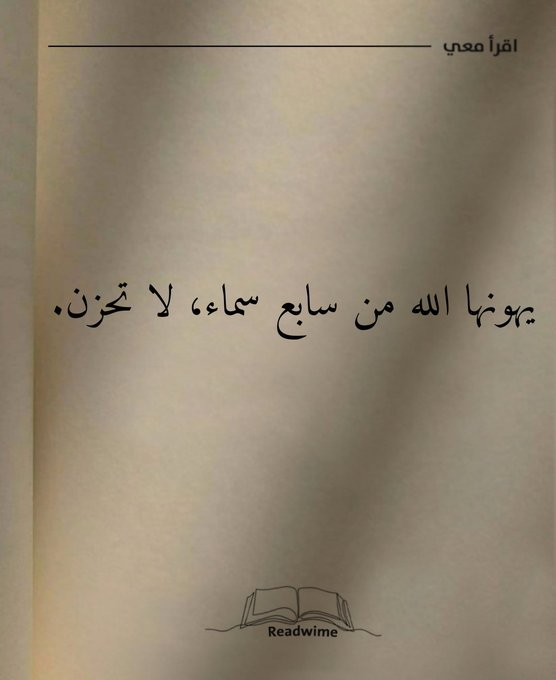 اقرأ معي
يهونها الله من سابع سماء، لا تحزن.
Readwime